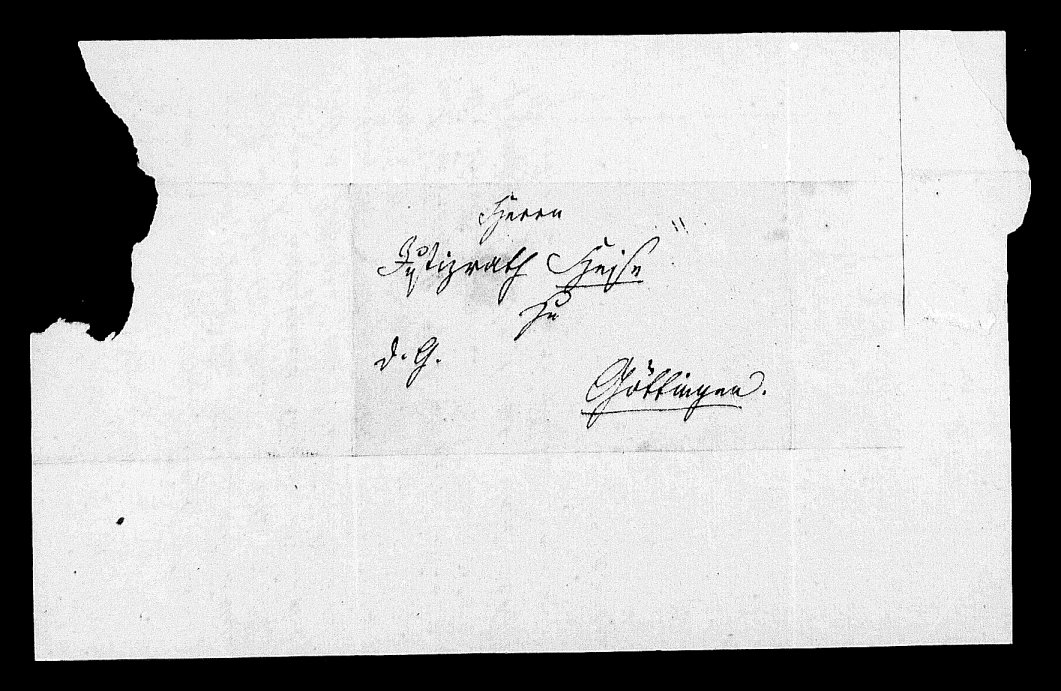 Herrn
Justizrath Heise
zu
d. G.
Göttingen.